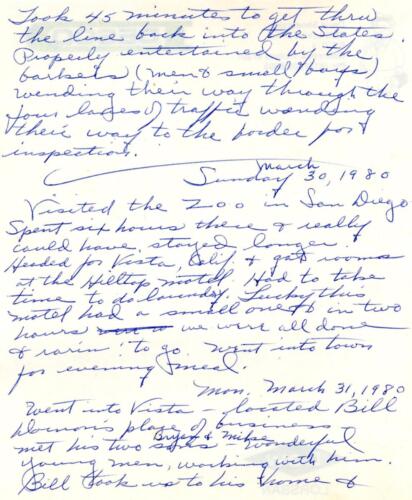 Took 45 minutes to get thru
the line back into the States.
Properly entertained by the
barkers (men & small boys)
wending their way through the
four lanes of traffic wending
their way to the border for
inspection.
Sunday March 30, 1980
Visited the Zoo in San Diego
Spent six hours there & really
could have stayed longer.
Headed for Vista, Calif. & got rooms
at the Hilltop motel. Had to take
time to do laundry. Lucky this
motel had a small one & in two
hours we were all done
& rarin' to go. Went into town
for evening meal.
Mon. March 31, 1980
Went into Vista - located Bill
place of business -
met his two sons Bryan & Mike - wonderful
young men, working with him.
Bill took us to his home &